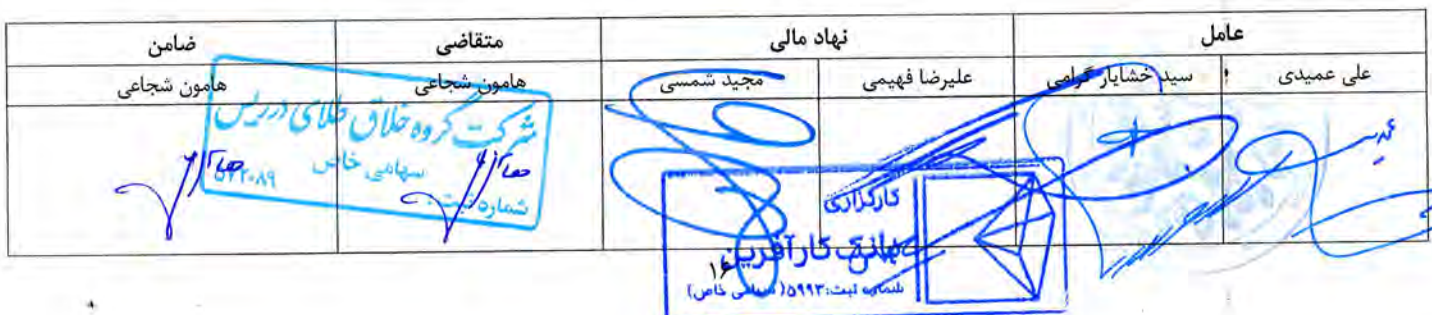 عامل نهاد مالی متقاضی ضامن
علی عمیدی سید خشایار گرامی علیرضا فهیمی مجید شمسی هامون شجاعی هامون شجاعی
شرکت گروه خلاق طلای درریس
سهامی خاص
شماره ثبت:
کارگزاری
بانک کارآفرین
شماره ثبت: ۵۹۹۳ (سهامی خاص)
۱۶